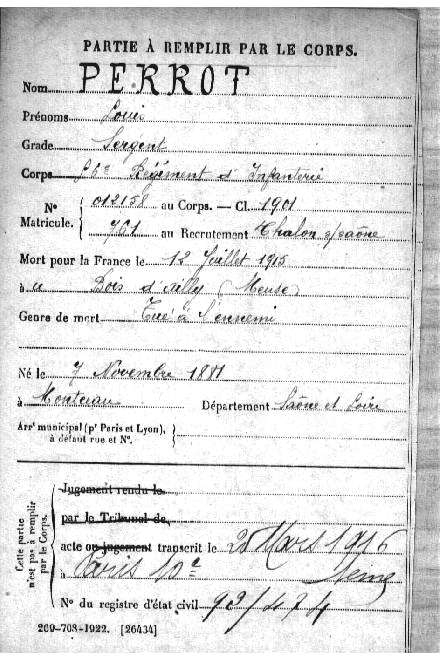 PARTIE À REMPLIR PAR LE CORPS.
Nom PERROT
Prénoms Louis
Grade Sergent
Corps 56e Régiment d'Infanterie
No Matricule. { 012158 au Corps. — Cl. 1901
761 au Recrutement Chalon s/saône
Mort pour la France le 12 Juillet 1915
à u Bois d'Ailly (Meuse)
Genre de mort Tué à l'ennemi
Né le 7 Novembre 1881
à Département Saône et Loire
Arrt municipal (pr Paris et Lyon), à défaut rue et No. }
Cette partie n'est pas à remplir par le Corps.
Jugement rendu le
par le Tribunal de
acte ou jugement transcrit le Mars 1916
à Paris Seine
No du registre d'état civil 93/474
269-708-1922. [26434]